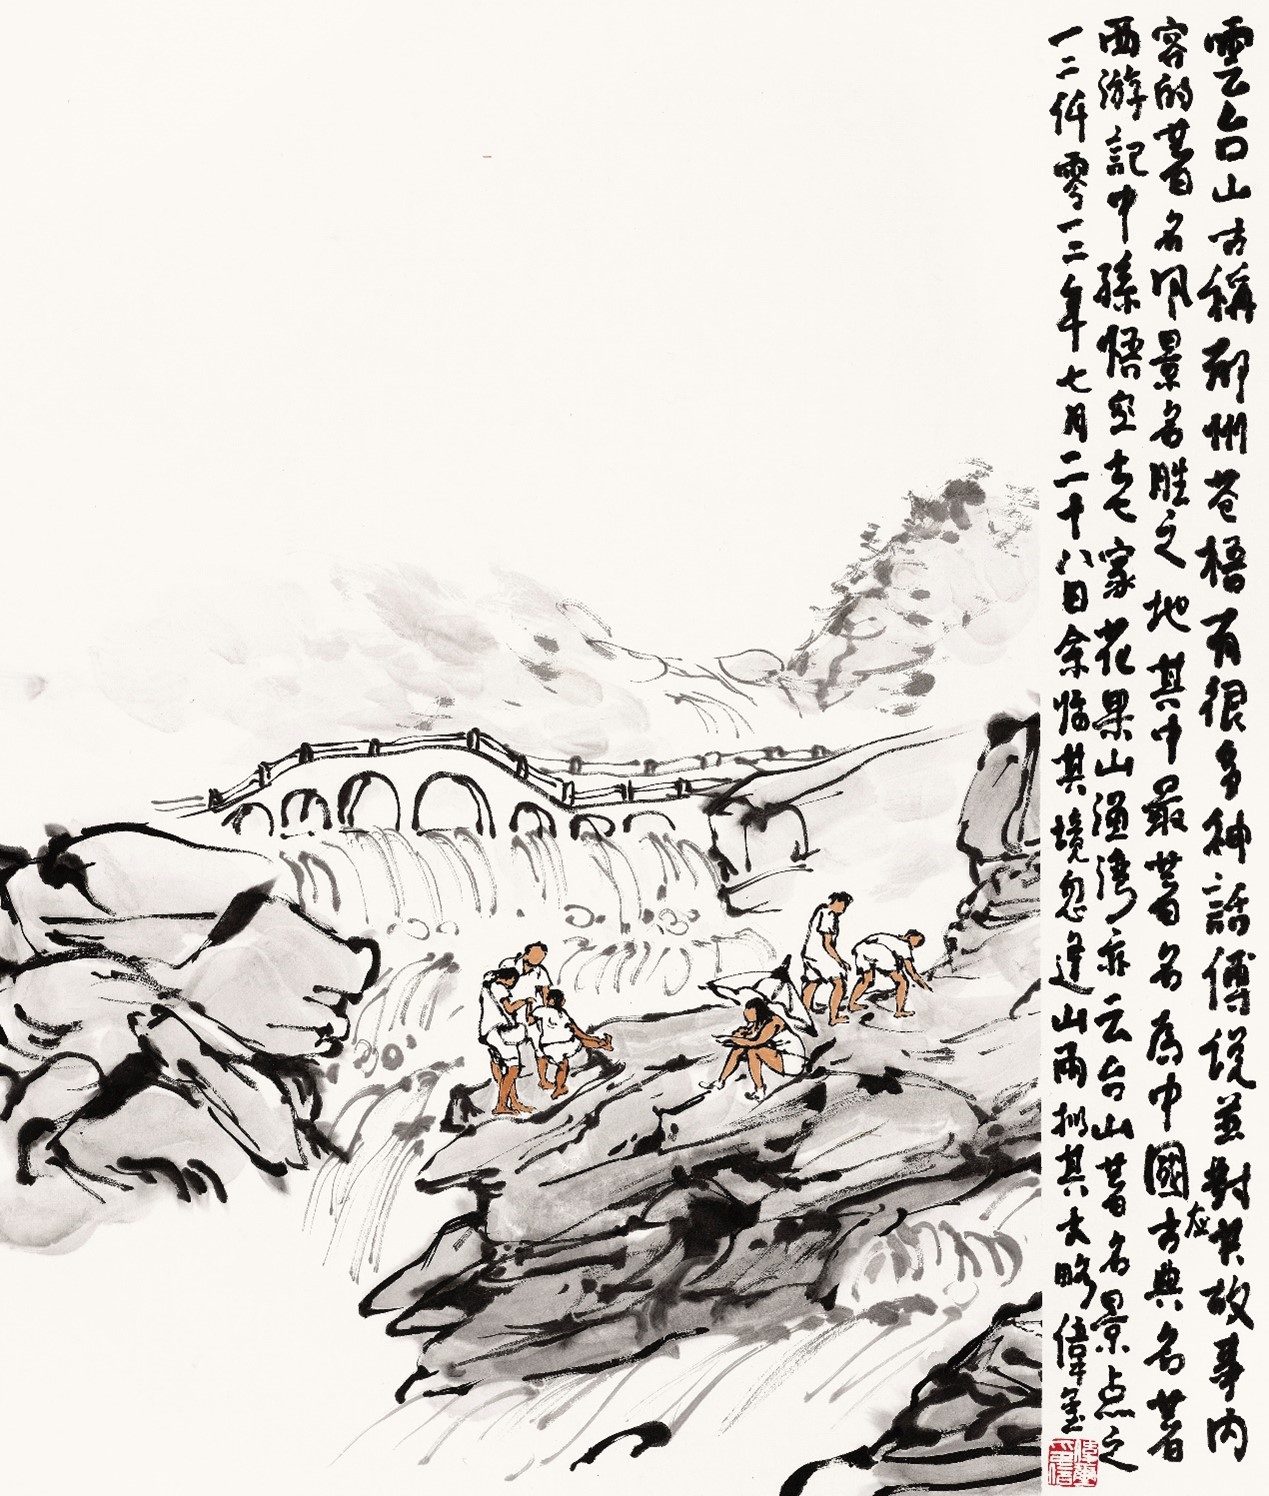 雲台山古稱郁州苍梧有很多神話傳說並對其故事内
容的著名風景名胜之地其中最著名為中國古典名著
在
西游記中孫悟空老家花果山漁湾亦云台山著名景点之
一二仟零一二年七月二十八日余临其境忽逢山雨拟其大略偉